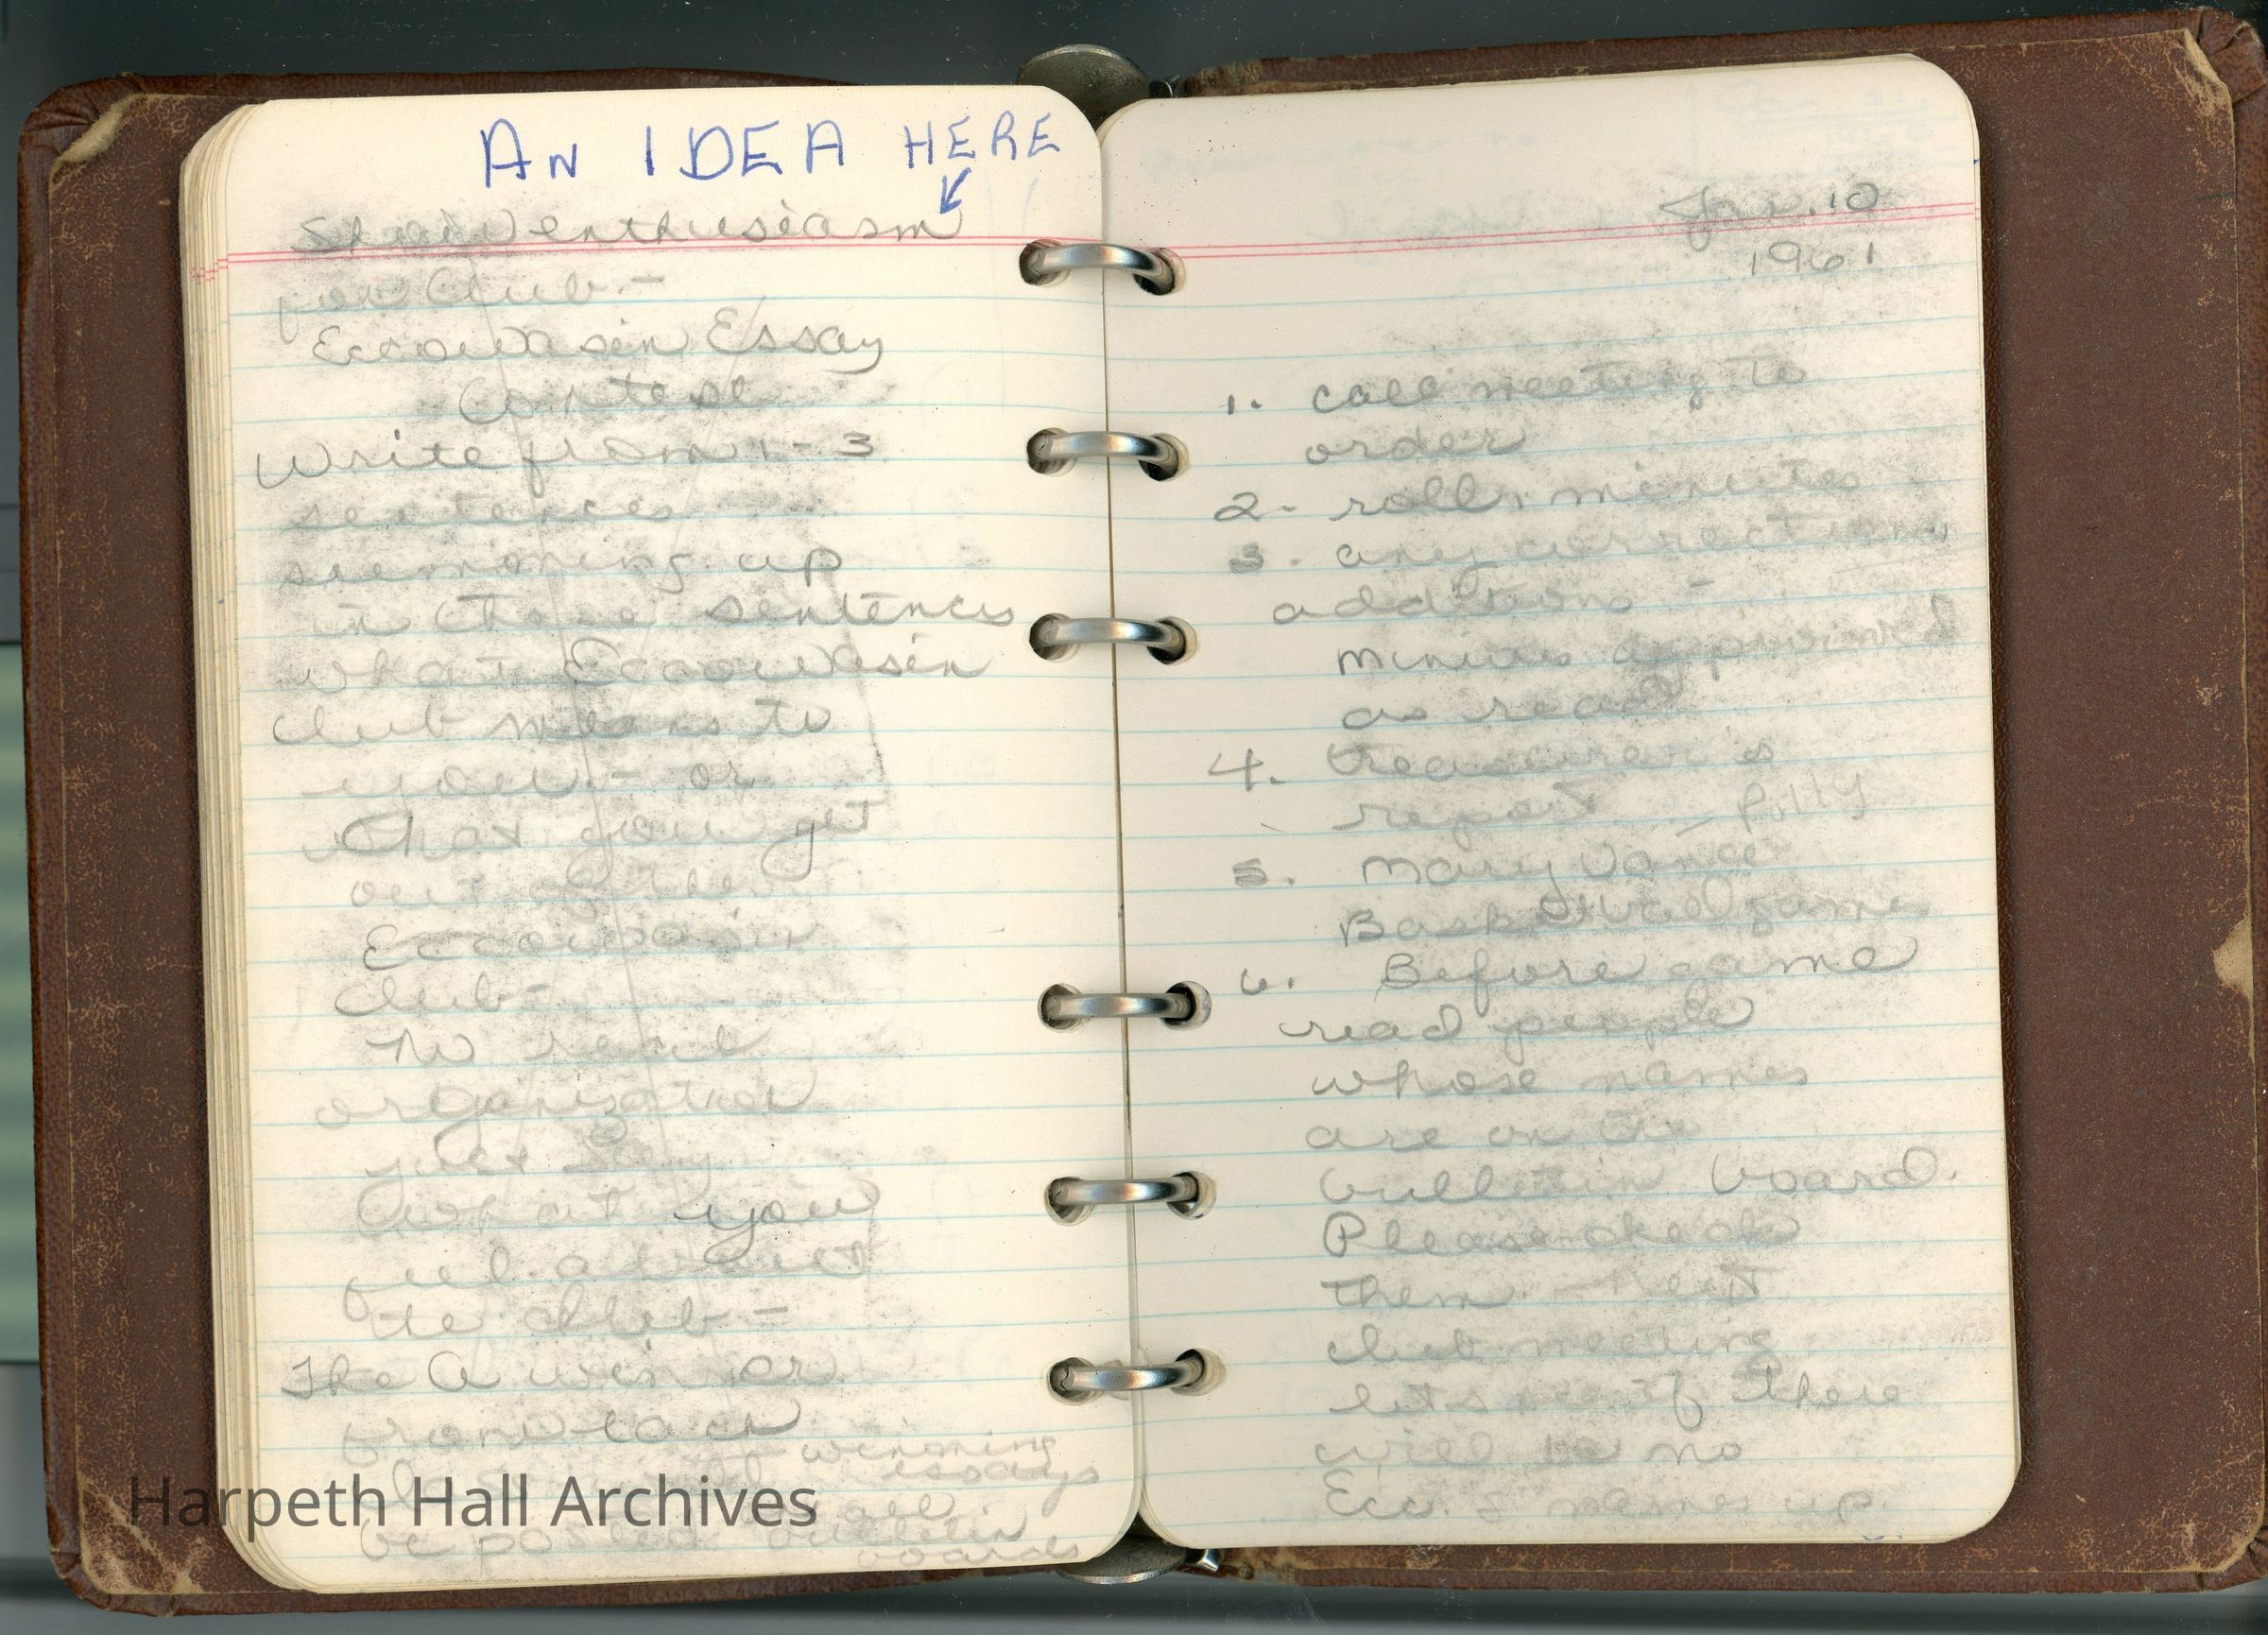 AN IDEA HERE
Show enthusiasm
for Club. -
Eccowasin Essay
Contest
Write from 1-3
sentences
summoning up
in those sentences
what Eccowasin
Club means to
you. - or
what you get
out of the
Eccowasin
Club -
No real
organization
just say
what you
feel about
the club -
The winner
from each
winning
essays
will
be posted bulletin
boards
Jan. 10
1961
1. call meeting to
order
2. roll, minutes
3. any corrections
additions -
Minutes approved
as read
4. treasurer's
report - Polly
5. Mary Vance
Basketball game
6. Before game
read people
whose names
are on the
bulletin board.
Please check
them - next
club meeting
let's see if there
will be no
Ecc.'s names up.
Harpeth Hall Archives